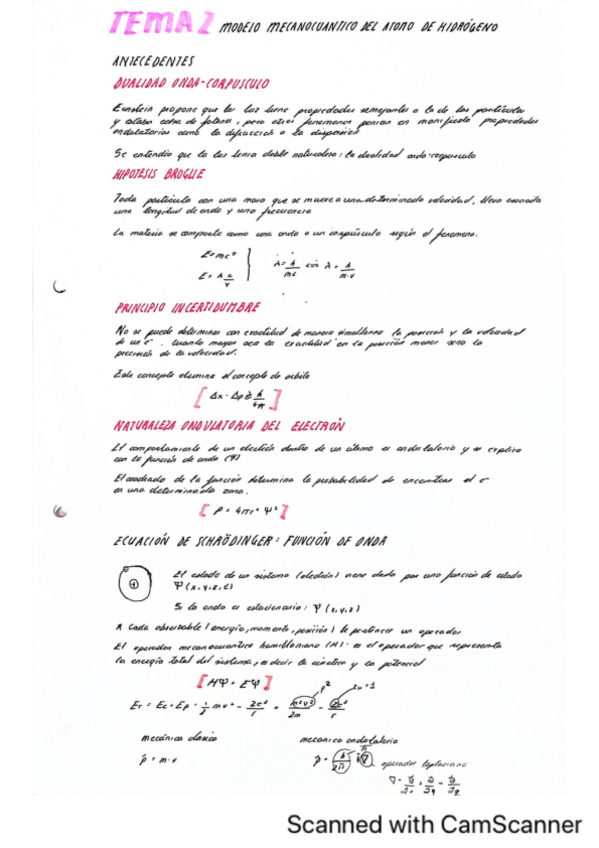 TEMA 2 MODELO MECANOCUANTICO DEL ATOMO DE HIDRÓGENO
ANTECEDENTES
DUALIDAD ONDA-CORPUSCULO
Einstein propone que la luz tiene propiedades semejantes a la de las partículas
y estaba de fotones, pero otros fenomenos ponian en manifiesto propiedades
ondulatorias como la difracción o la dispersión
Se entendía que la luz tenia doble naturaleza: la dualidad onda-corpusculo
HIPOTESIS BROGLIE
Toda partícula con una masa que se mueve a una determinada velocidad, lleva asociada
una longitud de onda y una frecuencia
La materia se comporta como una onda o un corpúsculo según el fenomeno.
E=mc²
E = h c/v
λ = h/mc λ = h/m·v
PRINCIPIO INCERTIDUMBRE
No se puede determinar con exactitud de manera simultanea la posición y la velocidad
de un e⁻. Cuanto mayor sea la exactitud en la posición menor sera la
precision de la velocidad.
Este concepto elimina el concepto de orbita
[ Δx · Δp ≥ h/4π ]
NATURALEZA ONDULATORIA DEL ELECTRÓN
El comportamiento de un electrón dentro de un átomo es ondulatorio y se explica
con la función de onda (Ψ)
El cuadrado de la función determina la probabilidad de encontrar el e⁻
en una determinada zona.
[ P = 4πr² Ψ² ]
ECUACIÓN DE SCHRÖDINGER: FUNCIÓN DE ONDA
El estado de un sistema (electrón) viene dado por una función de estado
Ψ(x,y,z,t)
Si la onda es estacionaria: Ψ(x,y,z)
A cada observable (energía, momento, posición) le pertenece un operador
El operador mecanocuantico hamiltoniano (H): es el operador que representa
la energía total del sistema, es decir la cinetica y la potencial
[ HΨ = EΨ ]
p² Zn=1
Er = Ec+Ep = 1/2 mv² - Ze²/r = m²v²/2m - Ze²/r
mecánica clásica mecanica ondulatoria
p̂ = m·v
operador laplaciano
Scanned with CamScanner